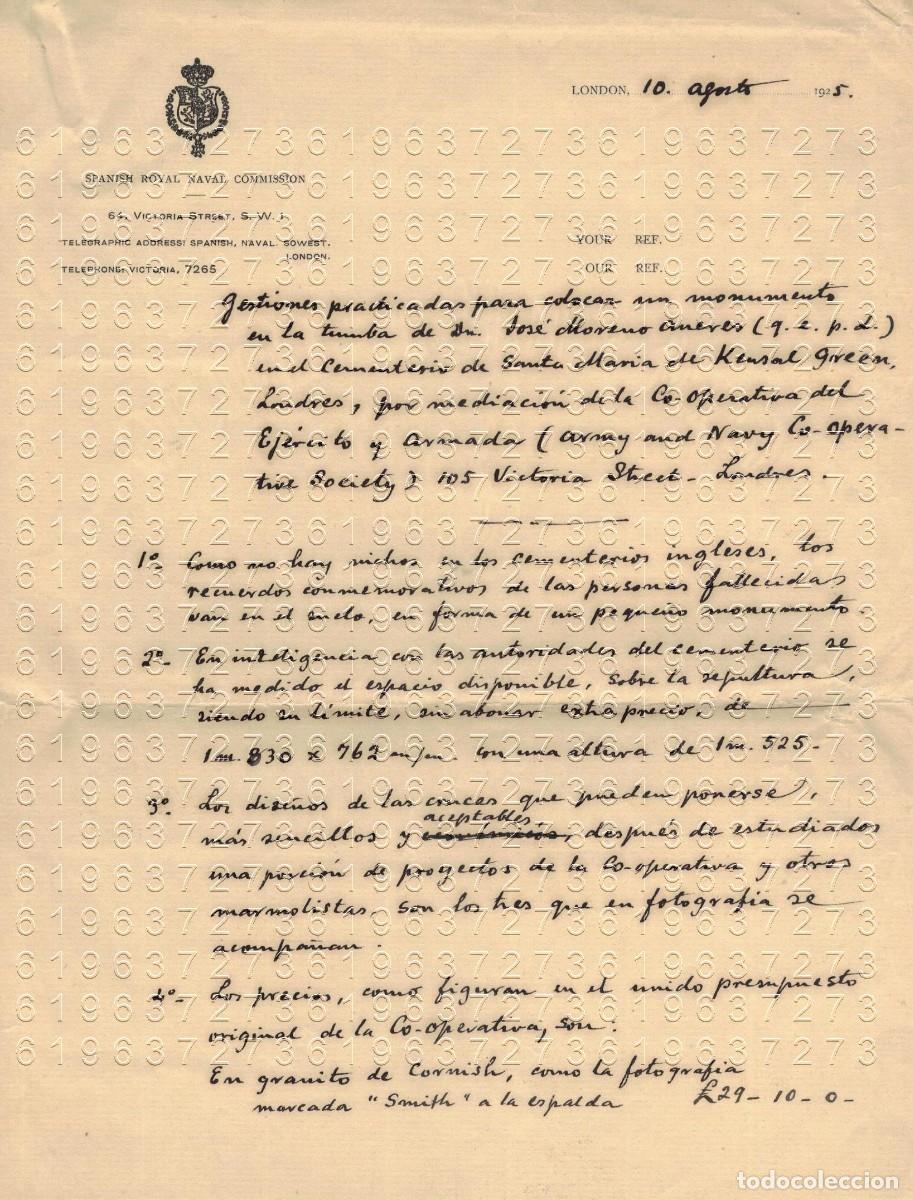 LONDON, 10. agosto 1925.
SPANISH ROYAL NAVAL COMMISSION
64, VICTORIA STREET, S. W. 1
TELEGRAPHIC ADDRESS: SPANISH, NAVAL. SOWEST.
LONDON.
TELEPHONE: VICTORIA, 7265
YOUR REF.
OUR REF.
Gestiones practicadas para colocar un monumento
en la tumba de Dn. José Moreno (q. e. p. d.)
en el Cementerio de Santa Maria de Kensal Green,
Londres, por mediación de la Co-operativa del
Ejército y Armada (Army and Navy Co-opera-
tive Society) 105 Victoria Street - Londres.
1º- Como no hay nichos en los cementerios ingleses, los
recuerdos conmemorativos de las personas fallecidas
van en el suelo, en forma de un pequeño monumento.
2º- En inteligencia con las autoridades del cementerio se
ha medido el espacio disponible, sobre la sepultura,
siendo su límite, sin abonar extra precio, de
1m. 830 x 762 m/m. con una altura de 1m. 525-
3º. Los diseños de las cruces que pueden ponerse,
aceptables
más sencillos y , después de estudiados
una porción de proyectos de la Co-operativa y otros
marmolistas, son los tres que en fotografia se
acompañan.
4º- Los precios, como figuran en el unido presupuesto
original de la Co-operativa, son:
En granito de Cornish, como la fotografia
marcada "Smith" a la espalda £29-10-0-
619637273
todocoleccion